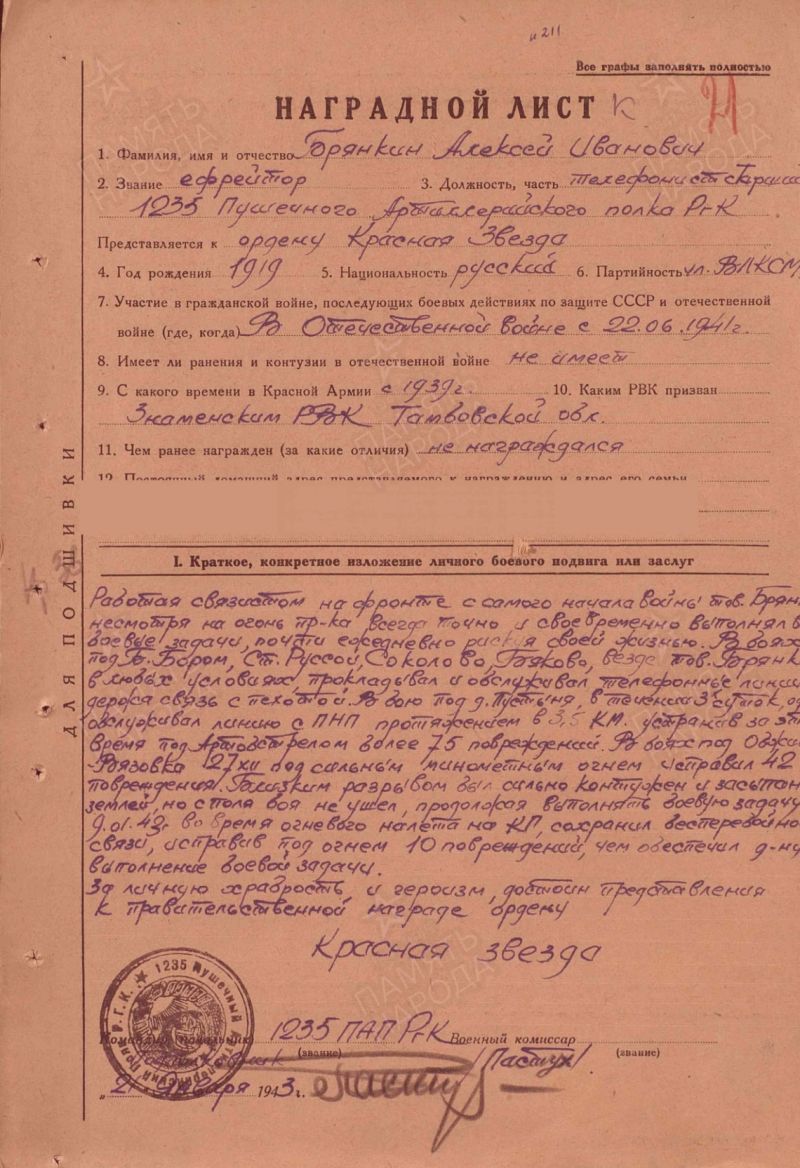 и 211
Все графы заполнять полностью
НАГРАДНОЙ ЛИСТ К
21
1. Фамилия, имя и отчество Брянкин Алексей Иванович
2. Звание ефрейтор 3. Должность, часть телефонист
1235 Пушечного Артиллерийского полка РГК
Представляется к ордену Красная Звезда
4. Год рождения 1919 5. Национальность русский 6. Партийность чл. ВЛКСМ
7. Участие в гражданской войне, последующих боевых действиях по защите СССР и отечественной
войне (где, когда) В Отечественной войне с 22.06.1941г.
8. Имеет ли ранения и контузии в отечественной войне не имеет
9. С какого времени в Красной Армии с 1939г. 10. Каким РВК призван
Знаменским РВК Тамбовской обл.
11. Чем ранее награжден (за какие отличия) не награждался
12. Постоянный домашний адрес представляемого к награждению и адрес его семьи
ДЛЯ ПОДШИВКИ
I. Краткое, конкретное изложение личного боевого подвига или заслуг
Работая связистом на фронте с самого начала войны тов. Брян
несмотря на огонь пр-ка всегда точно и своевременно выполнял
боевые задачи, почти ежедневно рискуя своей жизнью. В боях
под Бором, Ст. Руссой, Соколово, везде тов. Брянк
в любых условиях прокладывал и обслуживал телефонные линии
держа связь с пехотой. В бою под д. Пустыня, в течении 3 суток
обслуживал линию с ПНП протяжением в 3,5 КМ. устранив за эт
время под Артобстрелом более 75 повреждений. В боях под
Вязовка 27 XII под сильным минометным огнем исправил 42
повреждения. Близким разрывом был сильно контужен и засыпан
землей, но с поля боя не ушел, продолжая выполнять боевую задачу
9.01.43г во время огневого налета на КП, сохранил бесперебойно
связи, исправив под огнем 10 повреждений, чем обеспечил д-ну
выполнение боевой задачи.
За личную храбрость и героизм, достоин представления
к правительственной награде ордену
Красная звезда
1235 Пушечный Р.Г.К.
Командир (начальник) 1235 ПАП РГК Военный комиссар
(звание) /Пастух/ (звание)
„21" января 1943г.